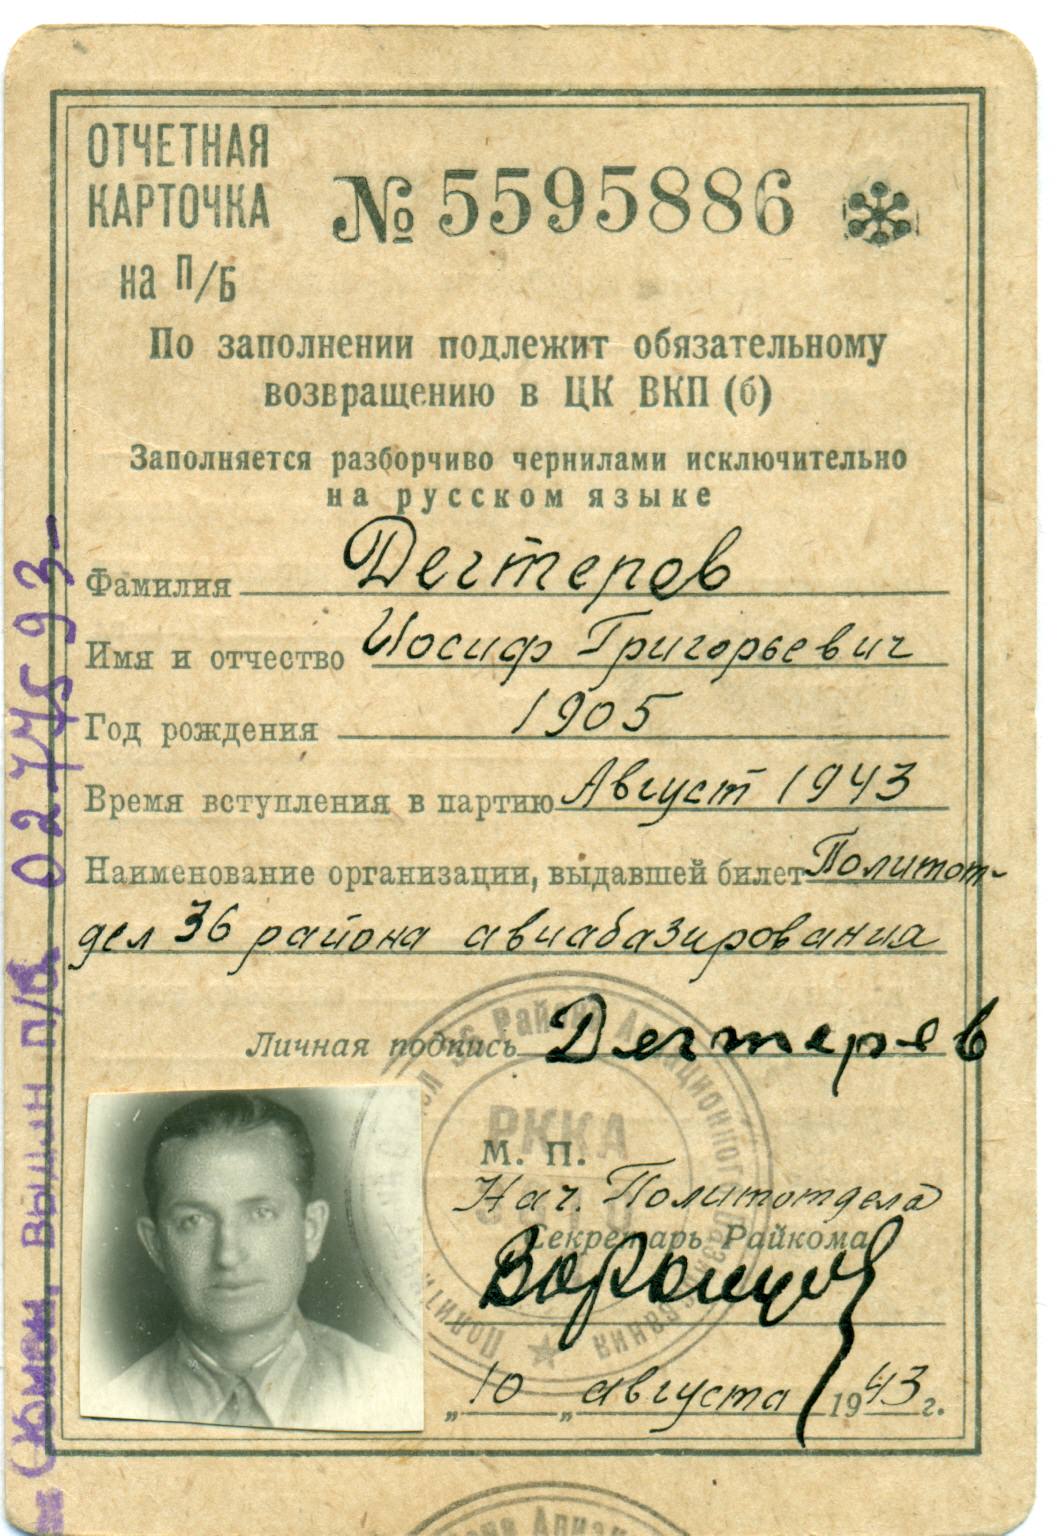 ОТЧЕТНАЯ
КАРТОЧКА
на П/Б
№ 5595886
По заполнении подлежит обязательному
возвращению в ЦК ВКП (б)
Заполняется разборчиво чернилами исключительно
на русском языке
Фамилия Дегтеров
Имя и отчество Иосиф Григорьевич
Год рождения 1905
Время вступления в партию Август 1943
Наименование организации, выдавшей билет Политот-
дел 36 района авиабазирования
Личная подпись Дегтерев
М. П.
Нач. Политотдела
Секретарь Райкома
Воронцов
„10„ августа 1943 г.
РККА
36 Района Авиационного
обмен, выдан п/б 0277593